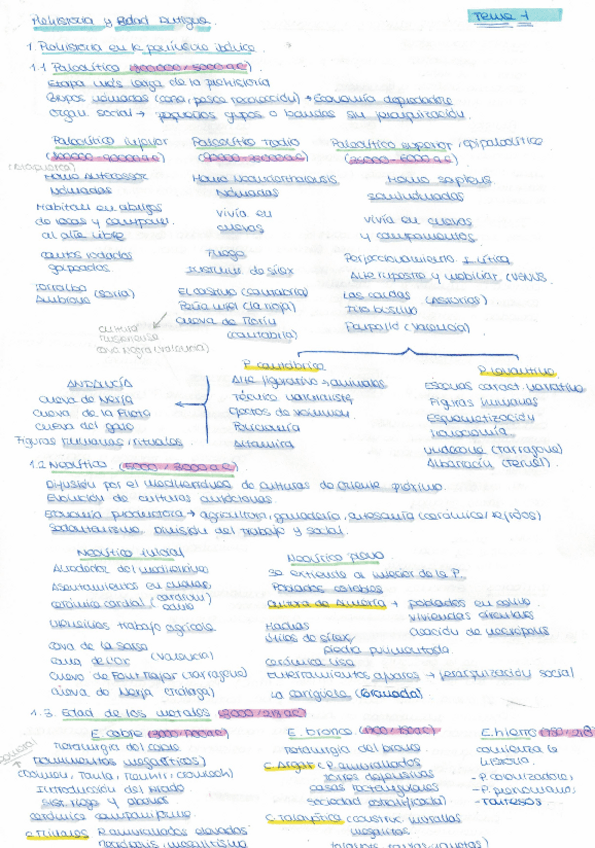 Prehistoria y Edad Antigua.
Tema 1
1. Prehistoria en la península ibérica.
1.1 Paleolítico (800000 / 5000 a.C)
Etapa más larga de la prehistoria
Grupos nómadas (caza, pesca, recolección) → Economía depredadora
Organ. social → pequeños grupos o bandas sin jerarquización.
Paleolítico inferior
Homo Antecessor
Nómadas
Habitan en abrigos
de rocas y
al aire libre
cantos rodados
golpeados.
Torralba (Soria)
Ambrona
Paleolítico medio
Homo Neanderthalensis
Nómadas
vivía en
cuevas
Fuego
de sílex
El Castillo (Cantabria)
(La Rioja)
Cueva de Morín
(Cantabria)
Cova Negra (Valencia)
Paleolítico superior, epipaleolítico
Homo sapiens
seminómadas
vivía en cuevas
y campamentos.
Perfeccionamiento i. lítica
Arte rupestre y mobiliar (Venus
Las Caldas (Asturias)
Tito Bustillo
Parpalló (Valencia)
P. cantábrica
Arte figurativo → animales
Técnica naturalista
efectos de volumen
Policromía
Altamira
P. levantina
Escenas caract. narrativo
Figuras humanas
Esquematización
Monocromía
(Tarragona)
Albarracín (Teruel).
ANDALUCÍA
Cueva de Nerja
Cueva de la Pileta
Cueva del gato
Figuras humanas, rituales
1.2 Neolítico (5000 / 3000 a.C)
Difusión por el mediterráneo de culturas de Oriente próximo.
Evolución de culturas autóctonas.
Economía productora → agricultura, ganadería, artesanía (cerámica/tejidos)
Sedentarismo. División del trabajo y social.
Neolítico inicial
Alrededor del mediterráneo
Asentamientos en cuevas
cerámica cardial (cardium)
Utensilios trabajo agrícola.
Cova de la Sarsa
Cova de l'Or (Valencia)
Cueva de Font Major (Tarragona)
Cueva de Nerja (Málaga)
Neolítico pleno
Se extiende al interior de la P.
Poblados estables
Cultura de Almería → poblados en
viviendas circulares
creación de necrópolis
Hachas
Útiles de sílex
piedra pulimentada.
cerámica lisa
Enterramientos ajuares → jerarquización social
La Carigüela (Granada)
1.3. Edad de los metales (3000 / 218 a.C)
E. cobre
metalurgia del cobre
monumentos megalíticos)
Introducción del arado
Sist. riego y abonos
cerámica campaniforme.
C. Millares P. amurallados elevados
E. bronce
metalurgia del bronce
C. Argar (P. amurallados
torres defensivas
casas rectangulares
sociedad estratificada)
C. Talayótica (construc. murallas
megalitos.
E. hierro (750 / 218
comienza la
historia
- P. colonizadores
- P. prerromanos
- Tartesos